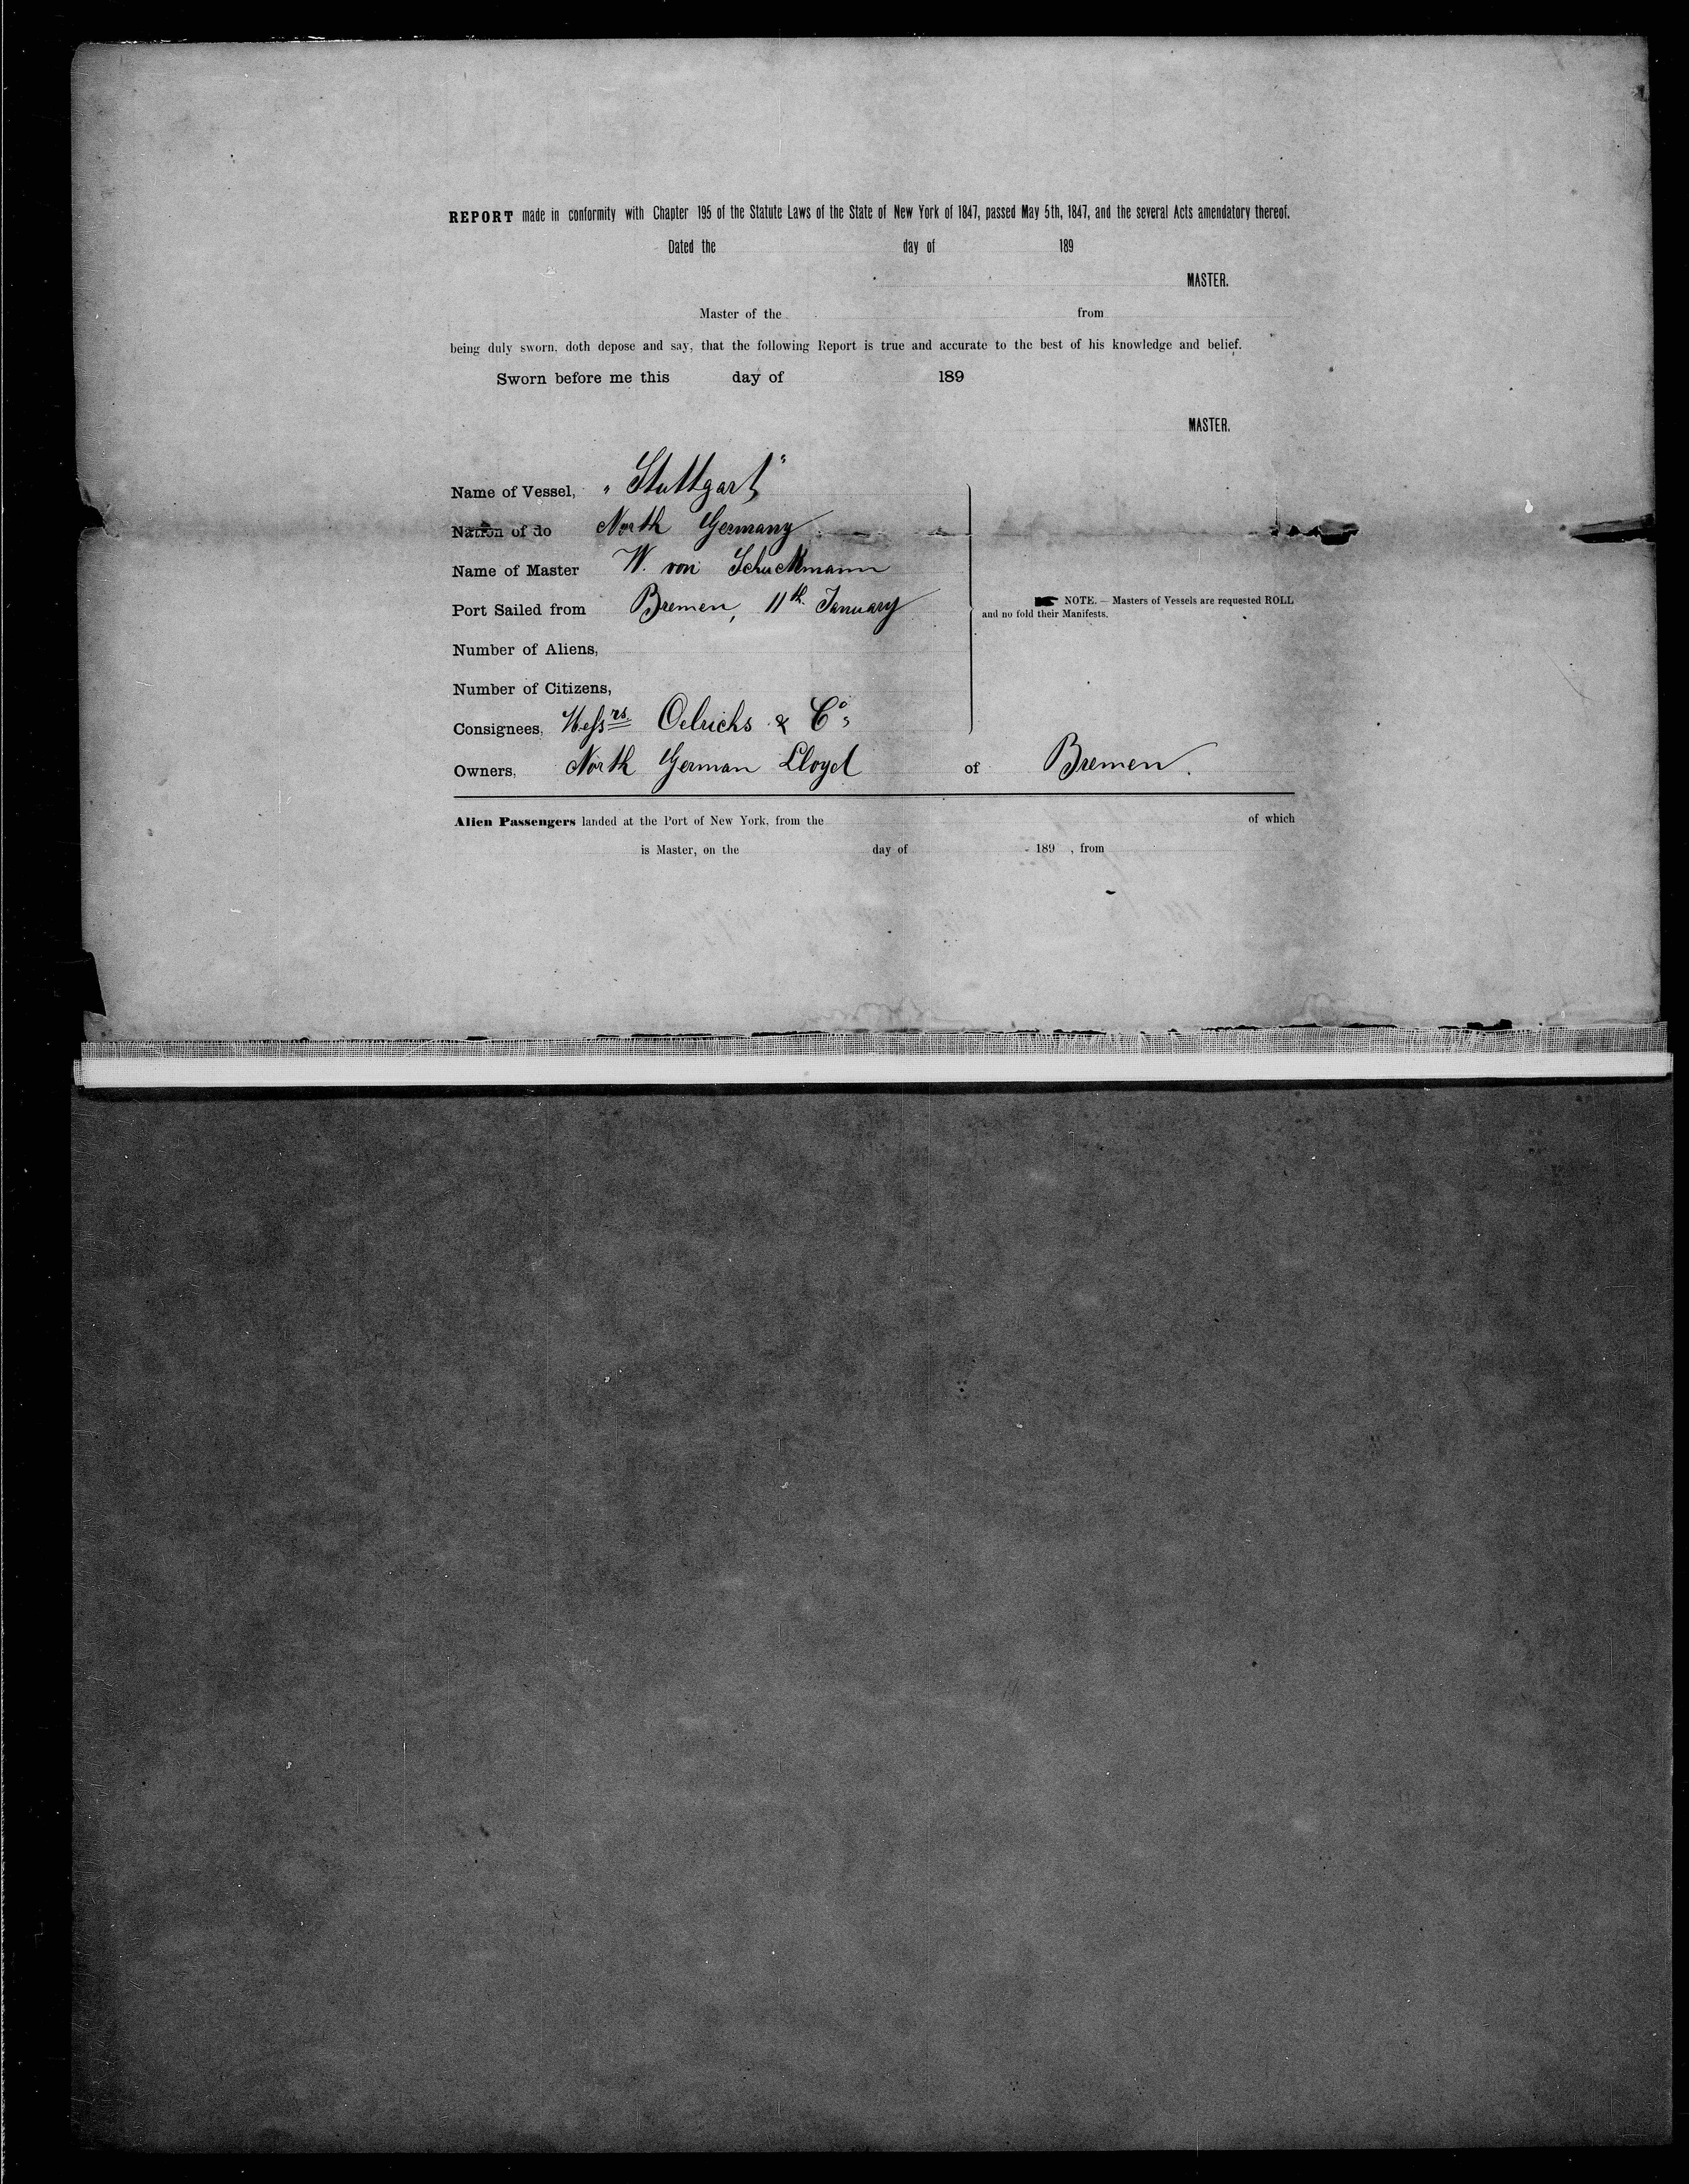 REPORT made in conformity with Chapter 195 of the Statute Laws of the State of New York of 1847, passed May 5th, 1847, and the several Acts amendatory thereof.
Dated the day of 189
MASTER.
Master of the from
being duly sworn, doth depose and say, that the following Report is true and accurate to the best of his knowledge and belief.
Sworn before me this day of 189
MASTER.
Name of Vessel, "Stuttgart"
Nation of do North Germany
Name of Master W. von Schuckmann
Port Sailed from Bremen, 11th January
NOTE. — Masters of Vessels are requested ROLL
and no fold their Manifests.
Number of Aliens,
Number of Citizens,
Consignees, Messrs. Oelrichs & Co,
Owners, North German Lloyd of Bremen.
Alien Passengers landed at the Port of New York, from the of which
is Master, on the day of 189 , from